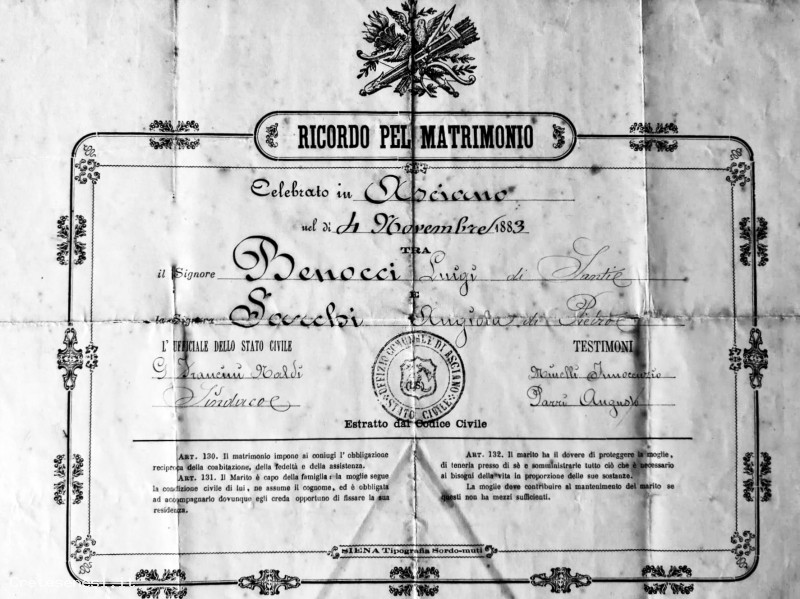 RICORDO PEL MATRIMONIO
Celebrato in Asciano
nel dì 4 Novembre 1883
TRA
il Signore Benocci Luigi di Sante
E
la Signora Sacchi Angiola di Pietro
L'UFFICIALE DELLO STATO CIVILE
G Brancini Naldi
Sindaco
UFFIZIO COMUNALE DI ASCIANO
STATO CIVILE
TESTIMONI
Minelli Innocenzio
Parri Augusto
Estratto dal Codice Civile
ART. 130. Il matrimonio impone ai coniugi l'obbligazione
reciproca della coabitazione, della fedeltà e della assistenza.
ART. 131. Il Marito è capo della famiglia: la moglie segue
la condizione civile di lui, ne assume il cognome, ed è obbligata
ad accompagnarlo dovunque egli creda opportuno di fissare la sua
residenza.
ART. 132. Il marito ha il dovere di proteggere la moglie,
di tenerla presso di sè e somministrarle tutto ciò che è necessario
ai bisogni della vita in proporzione delle sue sostanze.
La moglie deve contribuire al mantenimento del marito se
questi non ha mezzi sufficienti.
SIENA Tipografia Sordo-muti